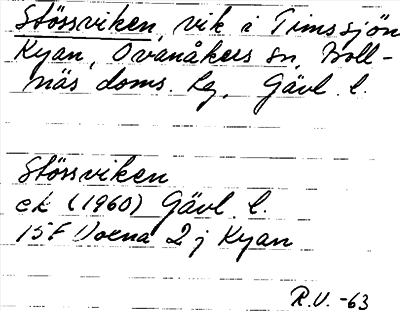 Stössviken, vik i Timssjön
Kyan, Ovanåkers sn, Boll-
näs doms. Lg, Gävl. l.
Stössviken
ek (1960) Gävl. l.
15F Voxna 2 j Kyan
R.V. -63